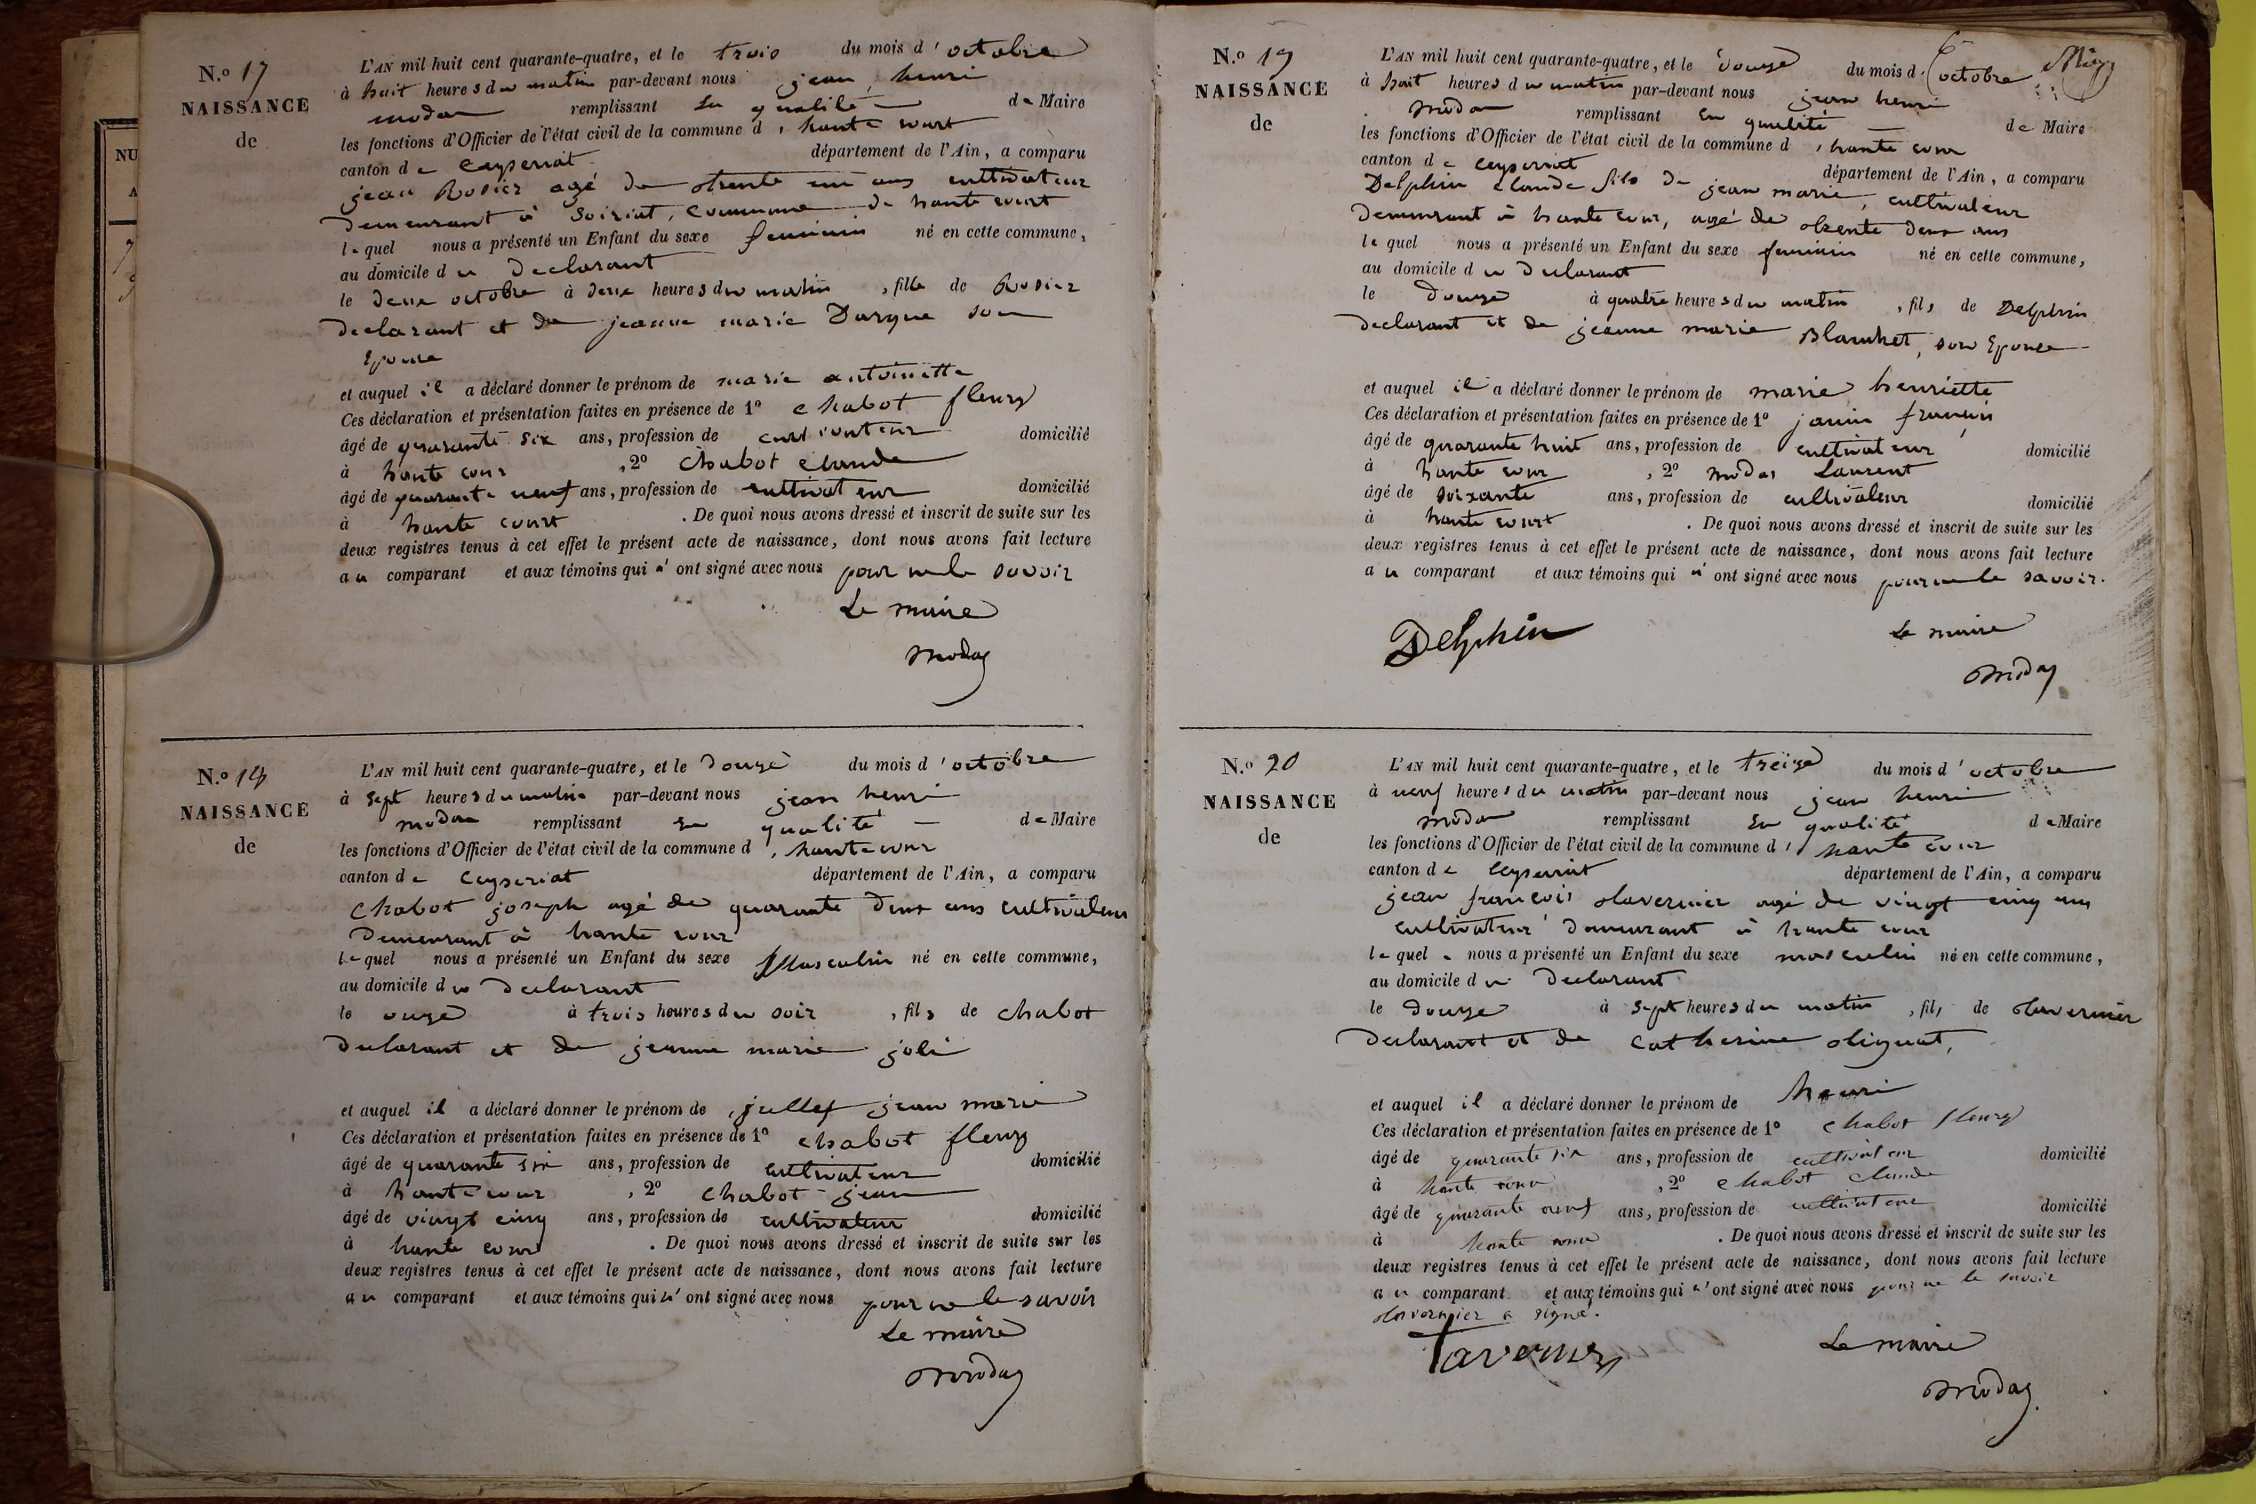 N.o 17
NAISSANCE
de
L'AN mil huit cent quarante-quatre, et le trois du mois d'octobre
à huit heures du matin par-devant nous jean henri
modas remplissant en qualité de Maire
les fonctions d'Officier de l'état civil de la commune d'hautecourt
canton de Ceyseriat département de l'Ain, a comparu
jean Rosier agé de trente un ans cultivateur
demeurant à Soiriat, commune de hautecourt
lequel nous a présenté un Enfant du sexe feminin né en cette commune,
au domicile du declarant
le deux octobre à deux heures du matin, fille de Rosier
declarant et de jeanne marie son
Epouse
et auquel il a déclaré donner le prénom de marie antoinette
Ces déclaration et présentation faites en présence de 1o chabot fleury
âgé de quarante six ans, profession de cultivateur domicilié
à haute cour, 2o chabot claude
âgé de quarante neuf ans, profession de cultivateur domicilié
à haute court. De quoi nous avons dressé et inscrit de suite sur les
deux registres tenus à cet effet le présent acte de naissance, dont nous avons fait lecture
au comparant et aux témoins qui n'ont signé avec nous pour ne le savoir
Le maire
modas
NAISSANCE
de
L'AN mil huit cent quarante-quatre, et le douze du mois d'octobre
à sept heures du matin par-devant nous jean henri
modas remplissant en qualité de Maire
les fonctions d'Officier de l'état civil de la commune d'hautecour
canton de Ceyseriat département de l'Ain, a comparu
Chabot joseph agé de quarante deux ans cultivateur
demeurant à haute cour
lequel nous a présenté un Enfant du sexe Masculin né en cette commune,
au domicile du declarant
le onze à trois heures du soir, fils de chabot
declarant et de jeanne marie joli
et auquel il a déclaré donner le prénom de jean marie
Ces déclaration et présentation faites en présence de 1o chabot fleury
âgé de quarante six ans, profession de cultivateur domicilié
à hautecour, 2o chabot jean
âgé de vingt cinq ans, profession de cultivateur domicilié
à haute cour. De quoi nous avons dressé et inscrit de suite sur les
deux registres tenus à cet effet le présent acte de naissance, dont nous avons fait lecture
au comparant et aux témoins qui n'ont signé avec nous pour ne le savoir
Le maire
modas
N.o 19
NAISSANCE
de
L'AN mil huit cent quarante-quatre, et le douze du mois d'octobre
à huit heures du matin par-devant nous jean henri
modas remplissant en qualité de Maire
les fonctions d'Officier de l'état civil de la commune d'haute cour
canton de ceyseriat département de l'Ain, a comparu
Delphin claude fils de jean marie, cultivateur
demeurant à haute cour, agé de trente deux ans
lequel nous a présenté un Enfant du sexe feminin né en cette commune,
au domicile du declarant
le douze à quatre heures du matin, fils de Delphin
declarant et de jeanne marie Blanchet, son Epouse
et auquel il a déclaré donner le prénom de marie henriette
Ces déclaration et présentation faites en présence de 1o janin françois
âgé de quarante huit ans, profession de cultivateur domicilié
à haute cour, 2o modas Laurent
âgé de soixante ans, profession de cultivateur domicilié
à haute court. De quoi nous avons dressé et inscrit de suite sur les
deux registres tenus à cet effet le présent acte de naissance, dont nous avons fait lecture
au comparant et aux témoins qui n'ont signé avec nous pour ne le savoir.
Delphin
Le maire
modas
N.o 20
NAISSANCE
de
L'AN mil huit cent quarante-quatre, et le treize du mois d'octobre
à neuf heures du matin par-devant nous jean henri
modas remplissant en qualité de Maire
les fonctions d'Officier de l'état civil de la commune d'haute cour
canton de Ceyseriat département de l'Ain, a comparu
jean françois tavernier agé de vingt cinq ans
cultivateur demeurant à haute cour
lequel nous a présenté un Enfant du sexe masculin né en cette commune,
au domicile du declarant
le douze à sept heures du matin, fils de tavernier
declarant et de catherine
et auquel il a déclaré donner le prénom de henri
Ces déclaration et présentation faites en présence de 1o chabot fleury
âgé de quarante six ans, profession de cultivateur domicilié
à haute cour, 2o chabot claude
âgé de quarante neuf ans, profession de cultivateur domicilié
à haute cour. De quoi nous avons dressé et inscrit de suite sur les
deux registres tenus à cet effet le présent acte de naissance, dont nous avons fait lecture
au comparant et aux témoins qui n'ont signé avec nous pour ne le savoir
tavernier a signé.
Tavernier
Le maire
modas